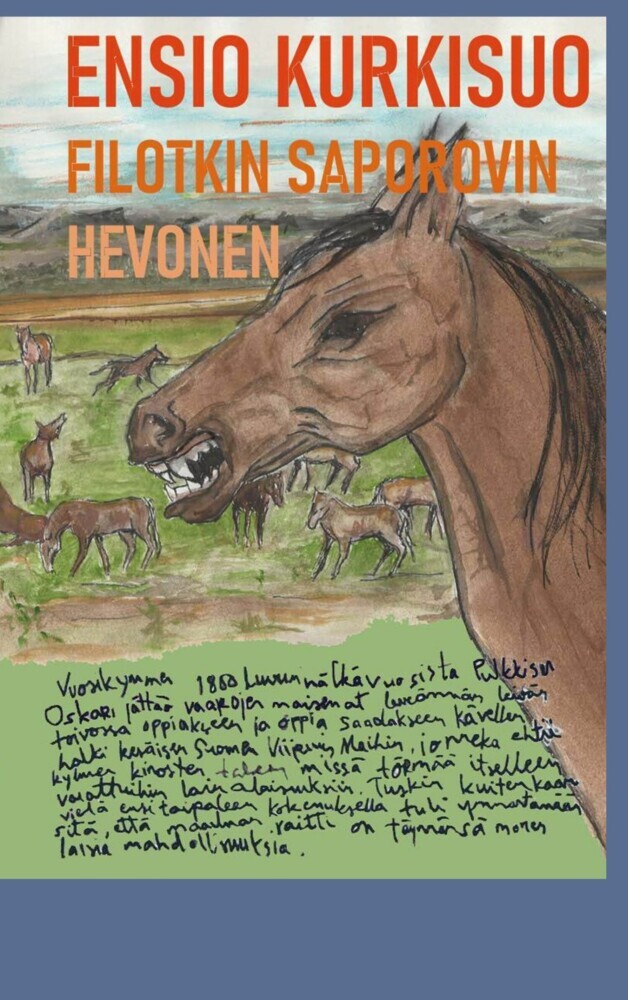 ENSIO KURKISUO
FILOTKIN SAPOROVIN
HEVONEN
Vuosikymmen 1860 luvun nälkävuosista Pulkkisen
Oskari jättää vaarojen maisemat leveämmän leivän
toivossa oppiakseen ja oppia saadakseen kävellen
halki keväisen Suomen Viipurin Maihin, jonneka ehtii
kymmen kinosten missä törmää itselleen
varattuihin lain alaisuuksiin. Tuskin kuitenkaan
vielä ensi taipaleen kokemuksella tuli ymmärtämään
sitä, että maailman raitti on täynnänsä monen
laisia mahdollisuuksia.